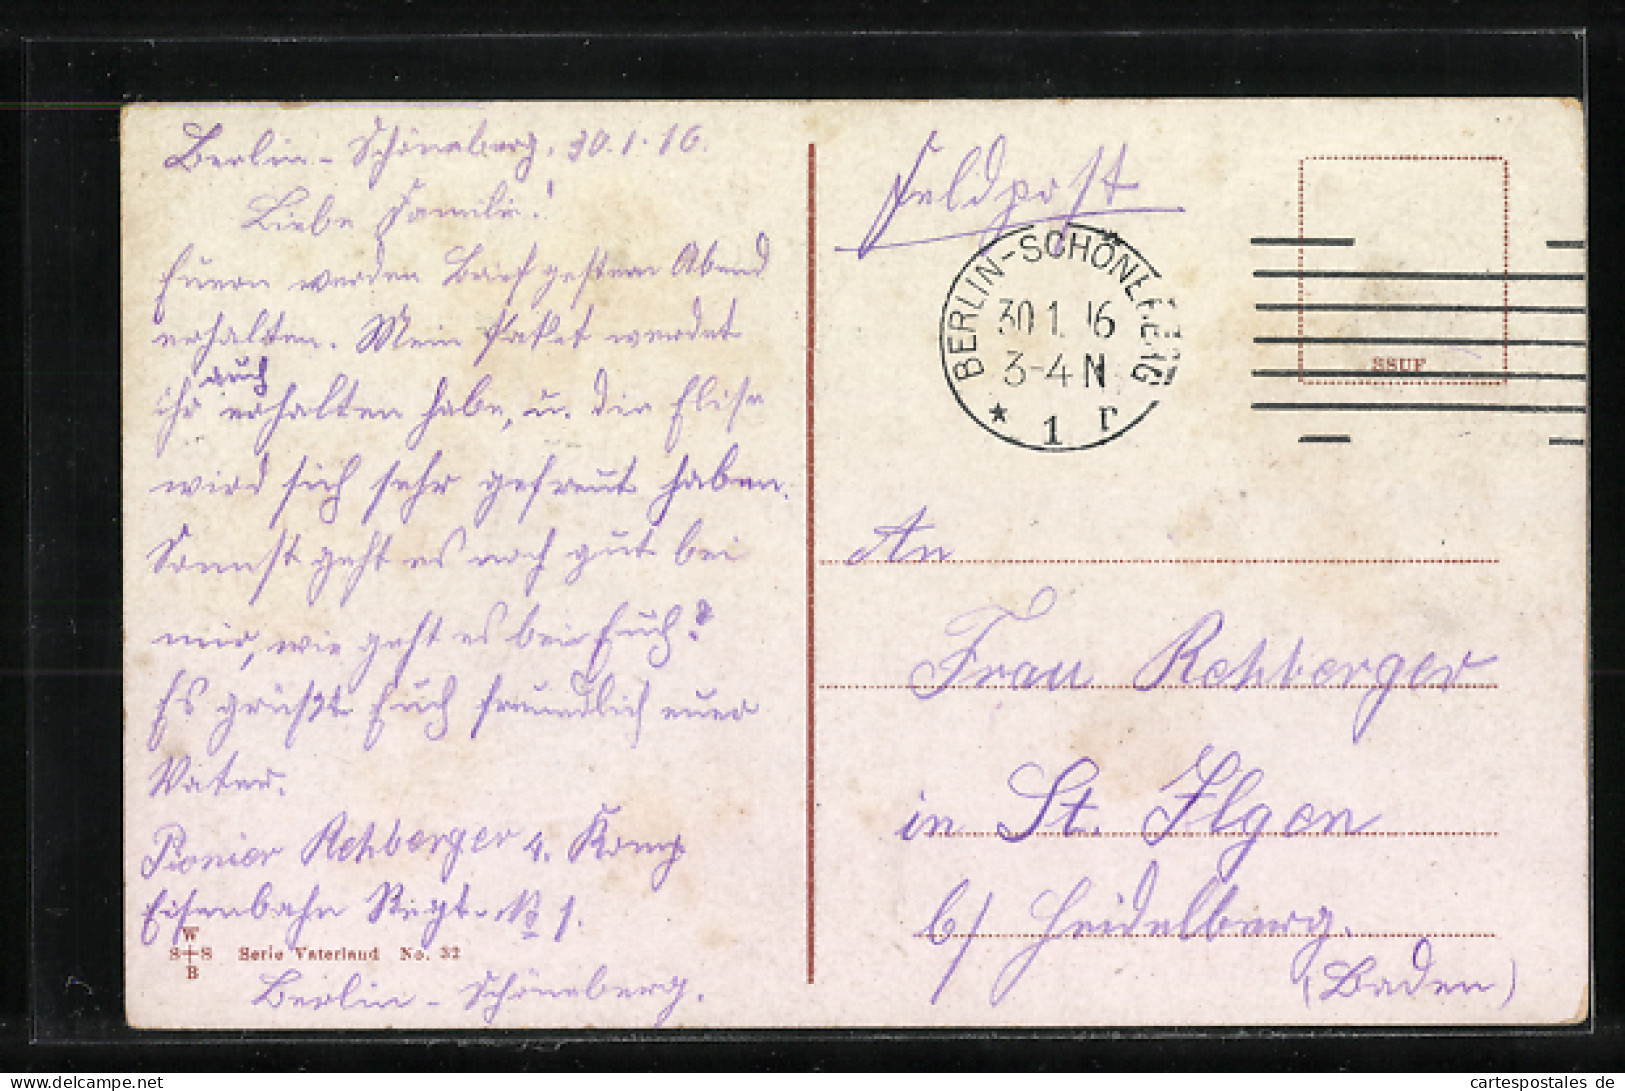 Berlin-Schöneberg, 30.1.16.
Liebe Familie!
Euern werden Brief gestern Abend
erhalten. Mein Paket werdet
ihr auch erhalten habe, u. die Elise
wird sich sehr gefreut haben.
Sonnst geht es noch gut bei
mir, wie geht es bei Euch?
Es grüßt Euch freundlich euer
Vater.
Pionier Rehberger 4. Komp
Eisenbahn Regt. No 1.
Berlin-Schöneberg.
W
S+S
B
Serie Vaterland No. 32
Feldpost
BERLIN-SCHÖNEBERG
30.1.16
3-4 N
* 1 r
SSUF
An
Frau Rehberger
in St. Ilgen
b/ Heidelberg.
(Baden)
www.cartespostales.de